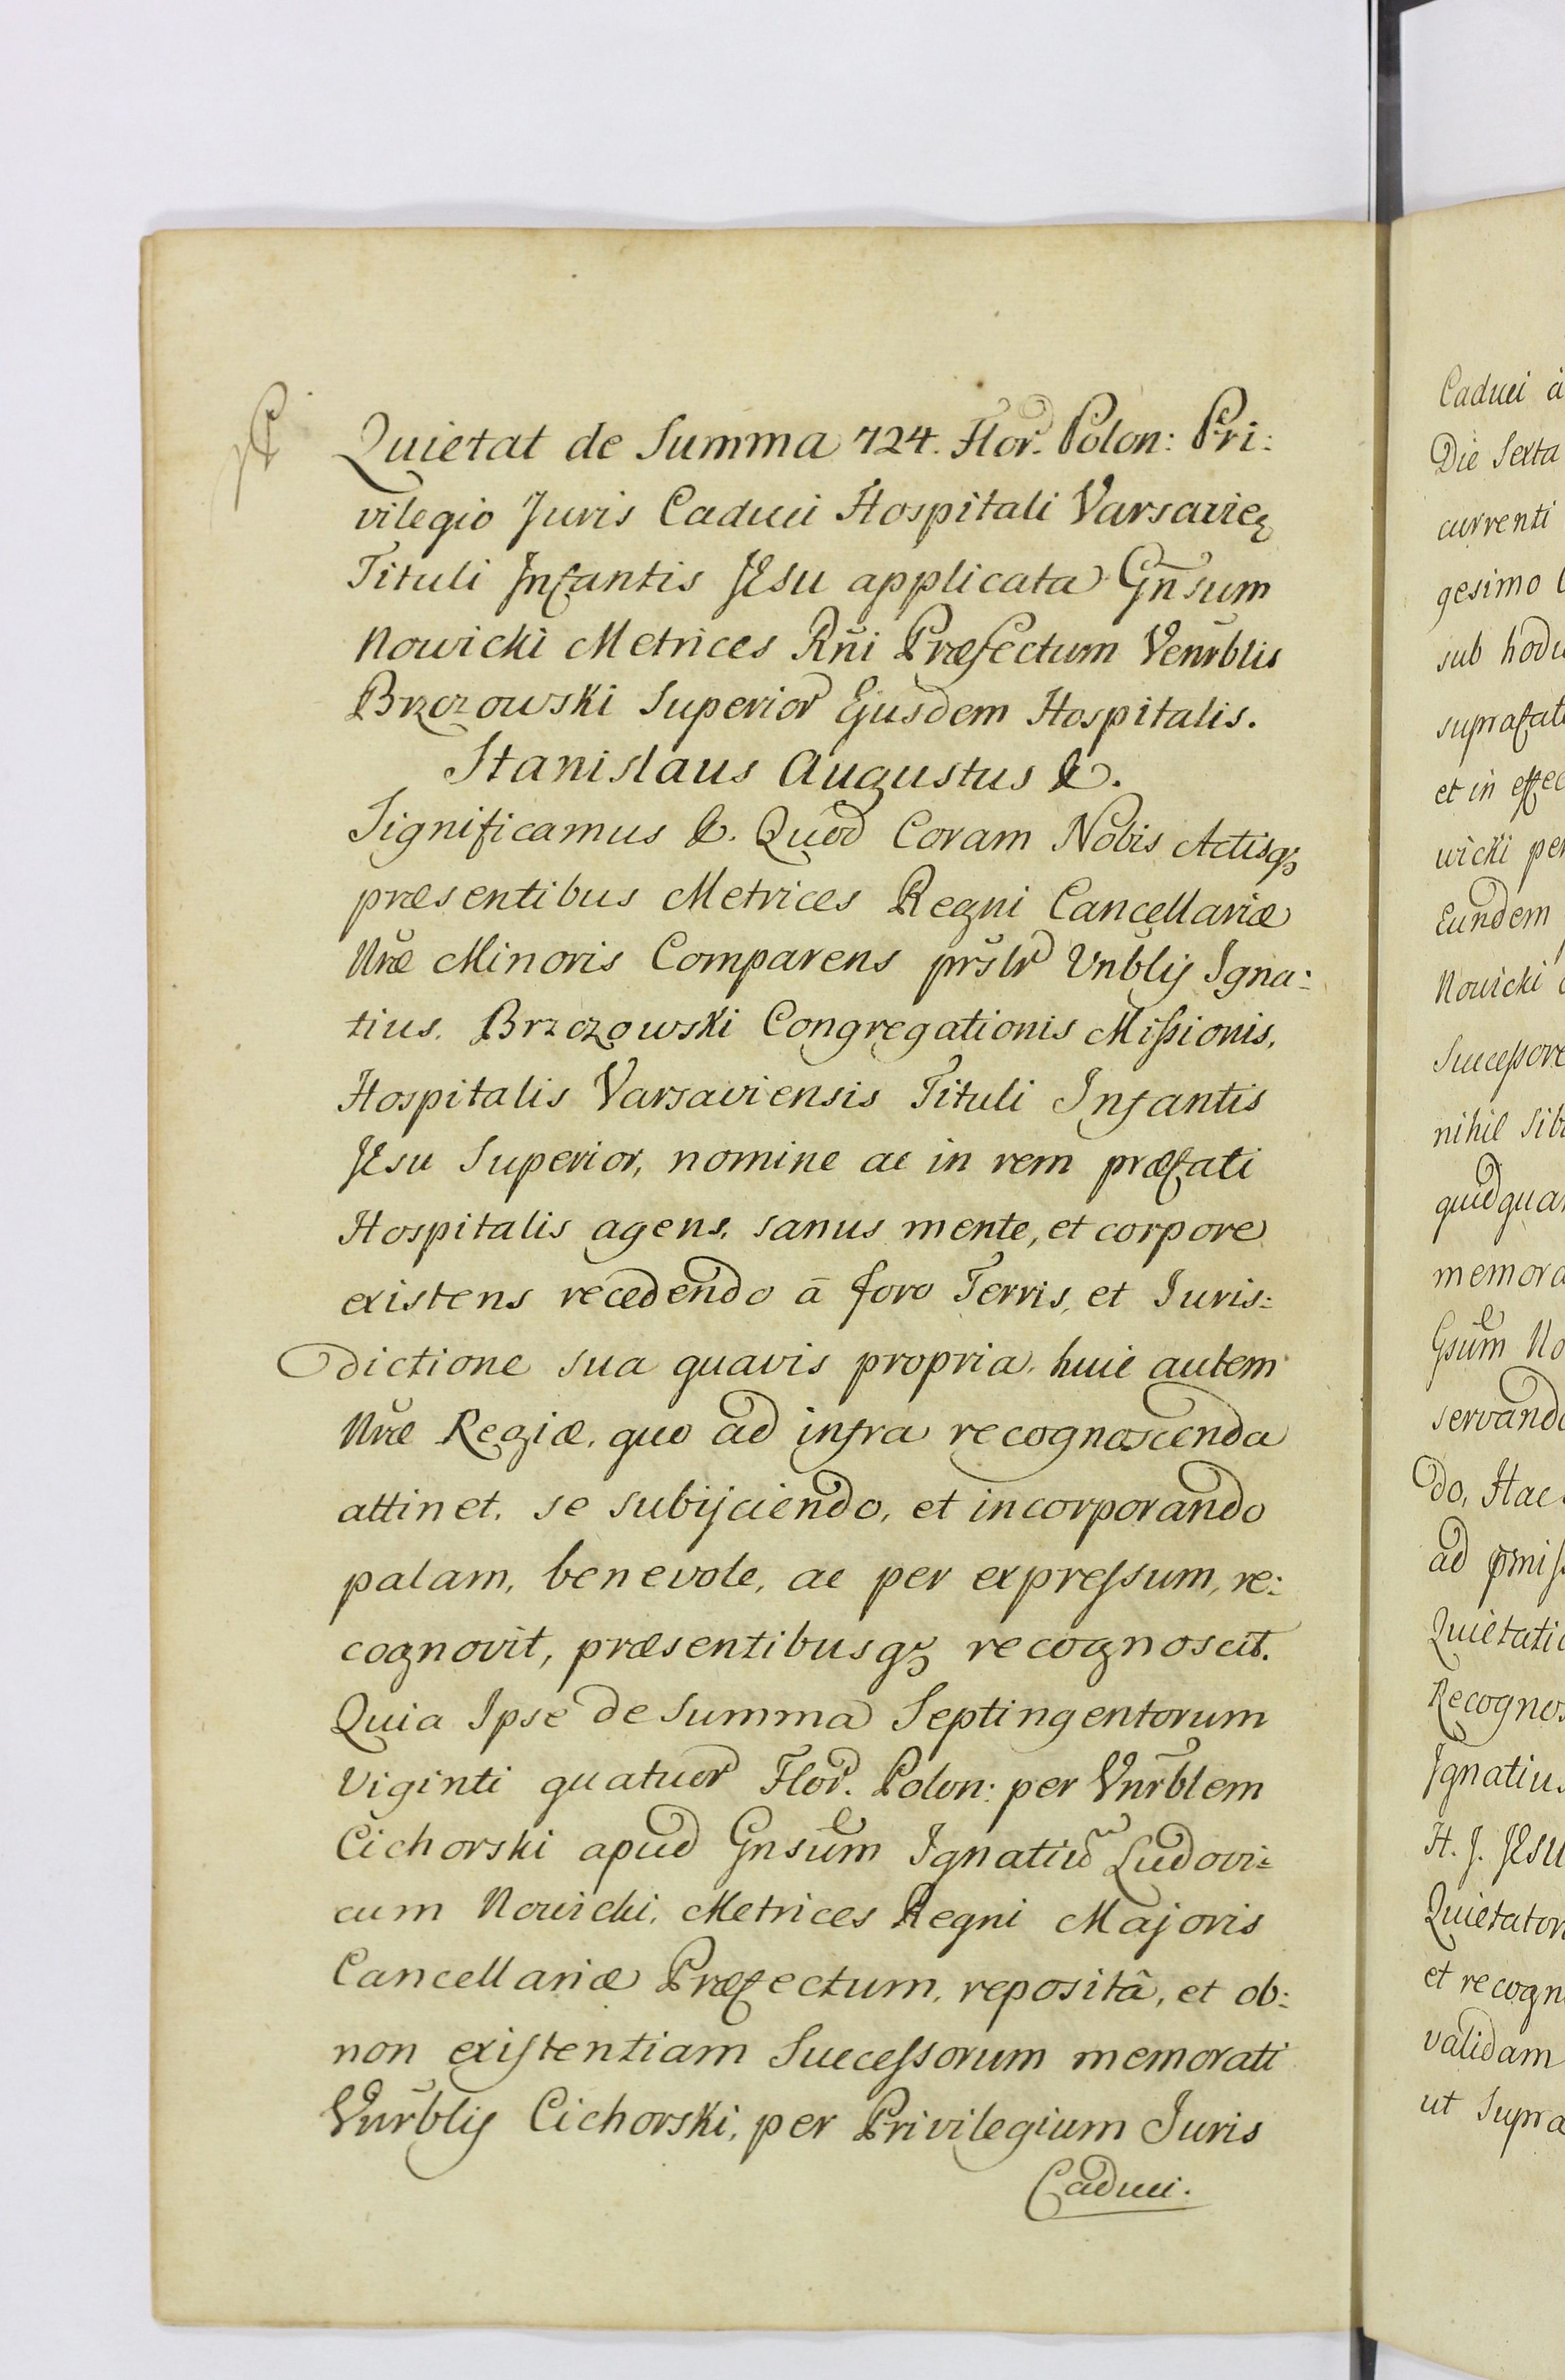 Quietat de Summa 724. Flor. Polon: Pri:
vilegio Juris Caduci Hospitali Varsavieꝫ
Tituli Infantis JEsu applicata Gn̄sum
Nowicki Metrices Rn̄i Præfectum Venr̄blis
Brzozowski Superior Ejusdem Hospitalis.
Stanislaus Augustus &.
Significamus &. Quod Coram Nobis Actisqꝫ
præsentibus Metrices Regni Cancellariæ
Nr̄æ Minoris Comparens prs̄lr Vnb̄lis Igna:
tius. Brzozowski Congregationis Missionis,
Hospitalis Varsaviensis Tituli Infantis
JEsu Superior, nomine ac in rem præfati
Hospitalis agens, sanus mente, et corpore
existens recedendo ā foro Terris, et Juris:
dictione sua quavis propria, huic autem
Nr̄æ Regiæ, quo ad infra recognoscenda
attinet, se subijciendo, et incorporando
palam, benevole, ac per expressum, re:
cognovit, præsentibusqꝫ recognoscit.
Quia Ipse de Summa Septingentorum
Viginti quatuor Flor. Polon: per Vnr̄blem
Cichorski apud Gnsum Ignatiū Ludovi:
cum Nowicki, Metrices Regni Majoris
Cancellariæ Præfectum, repositâ, et ob:
non existentiam Successorum memorati
Vnr̄blis Cichorski, per Privilegium Juris
Caduci.
Caduci à
Die Sexta
currenti
gesimo
sub hodi
suprafat
et in effec
wicki per
Eundem
Nowicki
Successore
nihil Sibi
quidqua
memora
Gsum No
servando
do, Hac
ad pmiss
Quietatio
Recognos
Ignatius
H. J. JEsu
Quietator
et recogn
validam
ut Supra